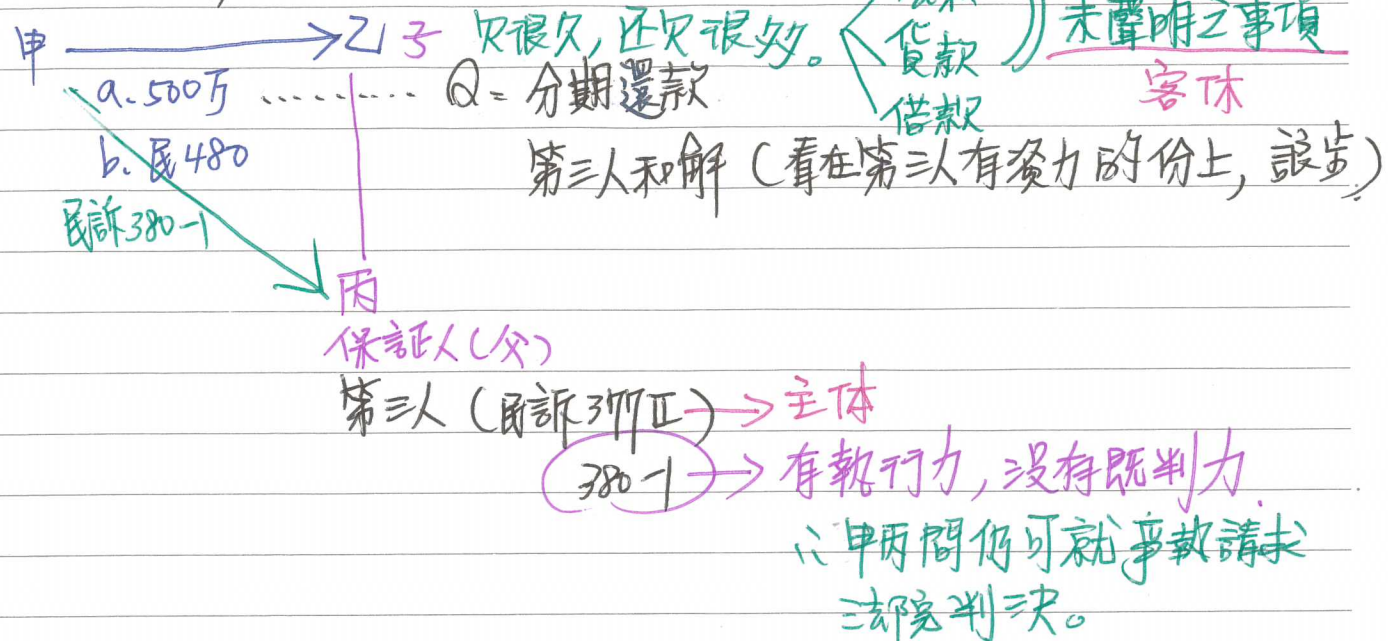 甲 → 乙 子 欠很久,还欠很多。 貨款 未聲明之事項
借款 客体
a. 500万 ......... Q = 分期還款
b. 民480 第三人和解(看在第三人有資力的份上,讓步)
民訴380-1
丙
保証人(父)
第三人(民訴377Ⅱ) → 主体
380-1 → 有執行力,没有既判力.
∴甲丙間仍可就爭執請求
法院判決。